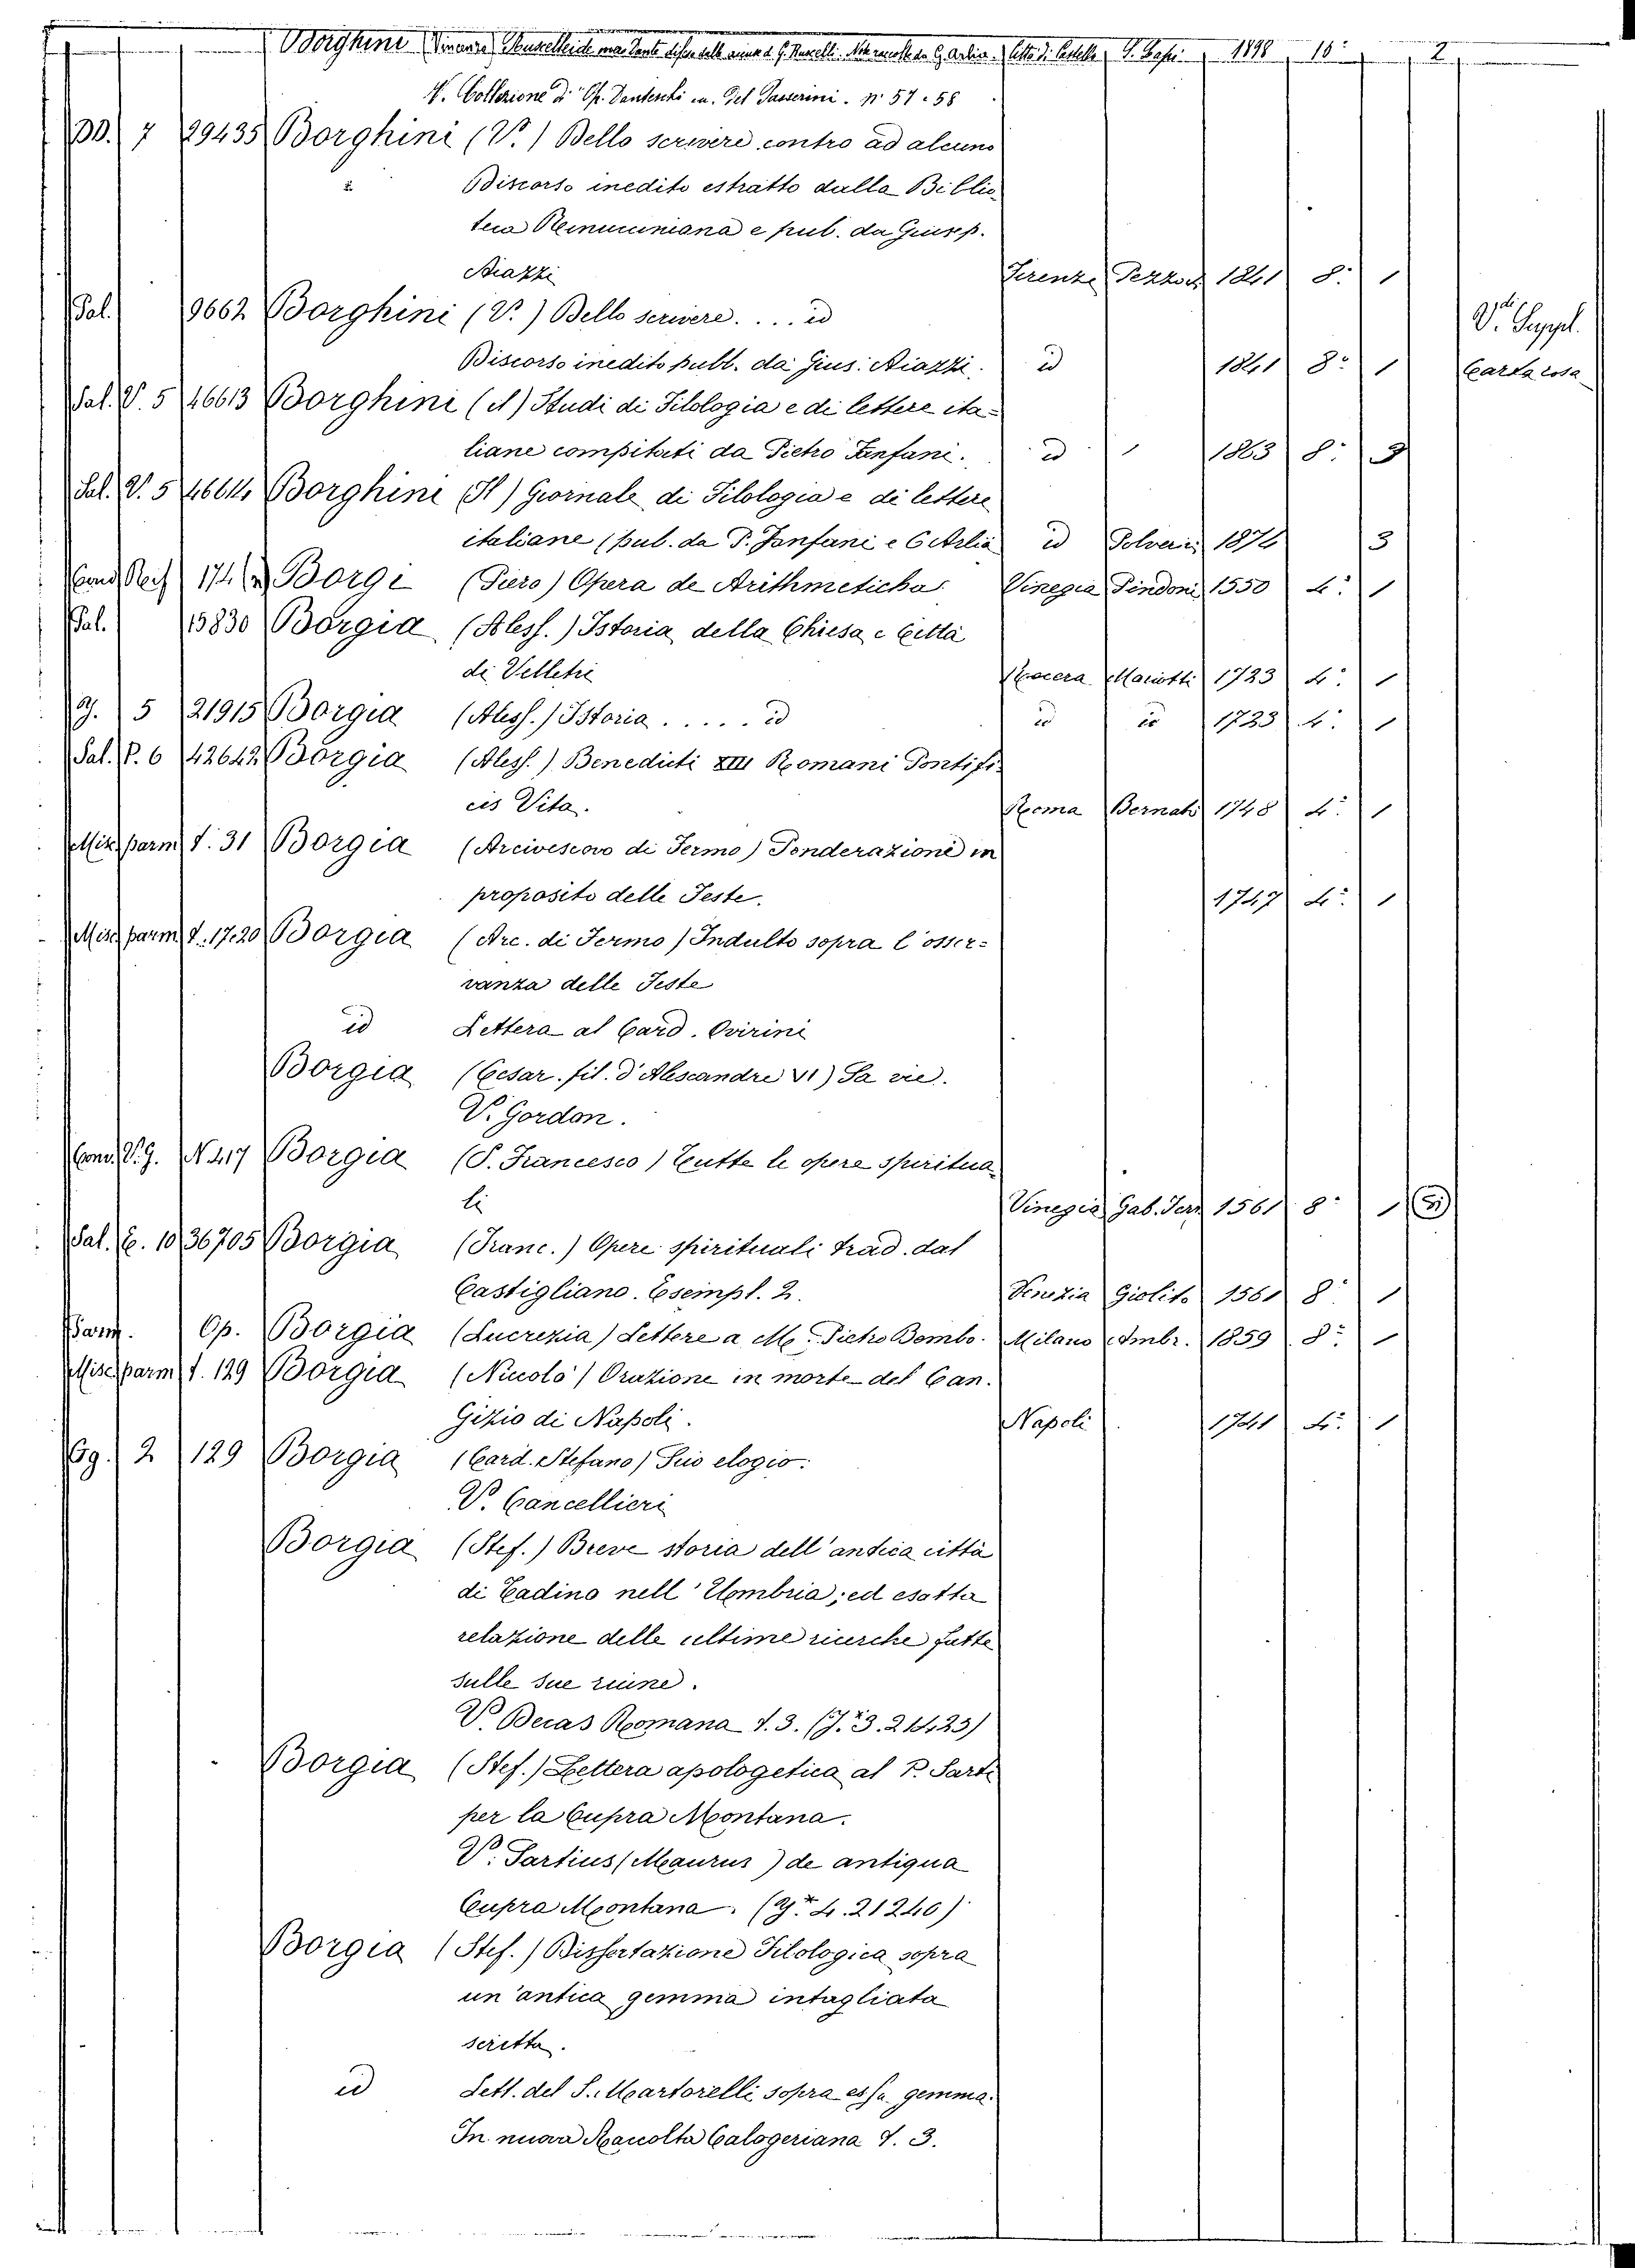 Borghini 1898 16° 2
V. Collezione di Op. Danteschi in. del Passerini. N° 57-58
DD. 7 29435 Borghini (V.) Bello scrivere contro ad alcuno
Discorso inedito estratto dalla Biblio
teca Rinucciniana e pub. da Giusep.
Aiazzi Firenze Pezzati 1841 8° 1
Pal. 9662 Borghini (V.) Bello scrivere.... id
Discorso inedito pubb. da Gius. Aiazzi. id 1841 8° 1 V. di Suppl. Carta rosa
Sal. V. 5 46613 Borghini (Il) Studi di Filologia e di lettere ita=
liane compilati da Pietro Fanfani. id 1863 8°
Sal. V. 5 46614 Borghini (Il) Giornale di Filologia e di lettere
italiane (pub. da P. Fanfani e C. Arlia id Polverini 1874 3
Borgi (Piero) Opera de Arithmeticha Vinegia Bindoni 1550 4° 1
Pal. 15830 Borgia (Aless.) Istoria della Chiesa e Città
di Velletri Nocera Mariotti 1723 4° 1
G. 5 21915 Borgia (Aless.) Istoria ..... id id id 1723 4° 1
Sal. P. 6 42642 Borgia (Aless.) Benedicti XIII Romani Pontifi=
cis Vita. Roma Bernabò 1748 4° 1
Misc. parm. t. 31 Borgia (Arcivescovo di Fermo) Ponderazioni in
proposito delle Feste. 1747 4° 1
Misc. parm. t. 17.20 Borgia (Arc. di Fermo) Indulto sopra l'osser=
vanza delle Feste
id Lettera al Card. Qvirini
Borgia (Cesar. fil. d'Alescandre VI) Sa vie.
V. Gordon.
Cond. V.G. N. 417 Borgia (S. Francesco) Tutte le opere spiritua
li Vinegia Gab. Ferr 1561 8° 1
Sal. C. 10 36705 Borgia (Franc.) Opere spirituali trad. dal
Castigliano. Esempl. 2. Venezia Giolito 1561 8° 1
Parm. Op. Borgia (Lucrezia) Lettere a Mr. Pietro Bembo. Milano Ambr. 1859 8° 1
Misc. parm. t. 129 Borgia (Nicolò) Orazione in morte del Can.
Gizio di Napoli. Napoli 1741 4° 1
Gg. 2 129 Borgia (Card. Stefano) Suo elogio.
V. Cancellieri
Borgia (Stef.) Breve storia dell'antica città
di Tadino nell'Umbria; ed esatta
relazione delle ultime ricerche fatte
sulle sue ruine.
V. Decas Romana t. 3. (J.* 3. 21423)
Borgia (Stef.) Lettera apologetica al P. Sarti
per la Cupra Montana.
V. Sartius (Maurus) de antiqua
Cupra Montana. (J.* 4. 21240)
Borgia (Stef.) Dissertazione Filologica sopra
un'antica gemma intagliata
scritta.
id Lett. del S. Martorelli sopra essa gemma.
In nuova Raccolta Calogeriana t. 3.